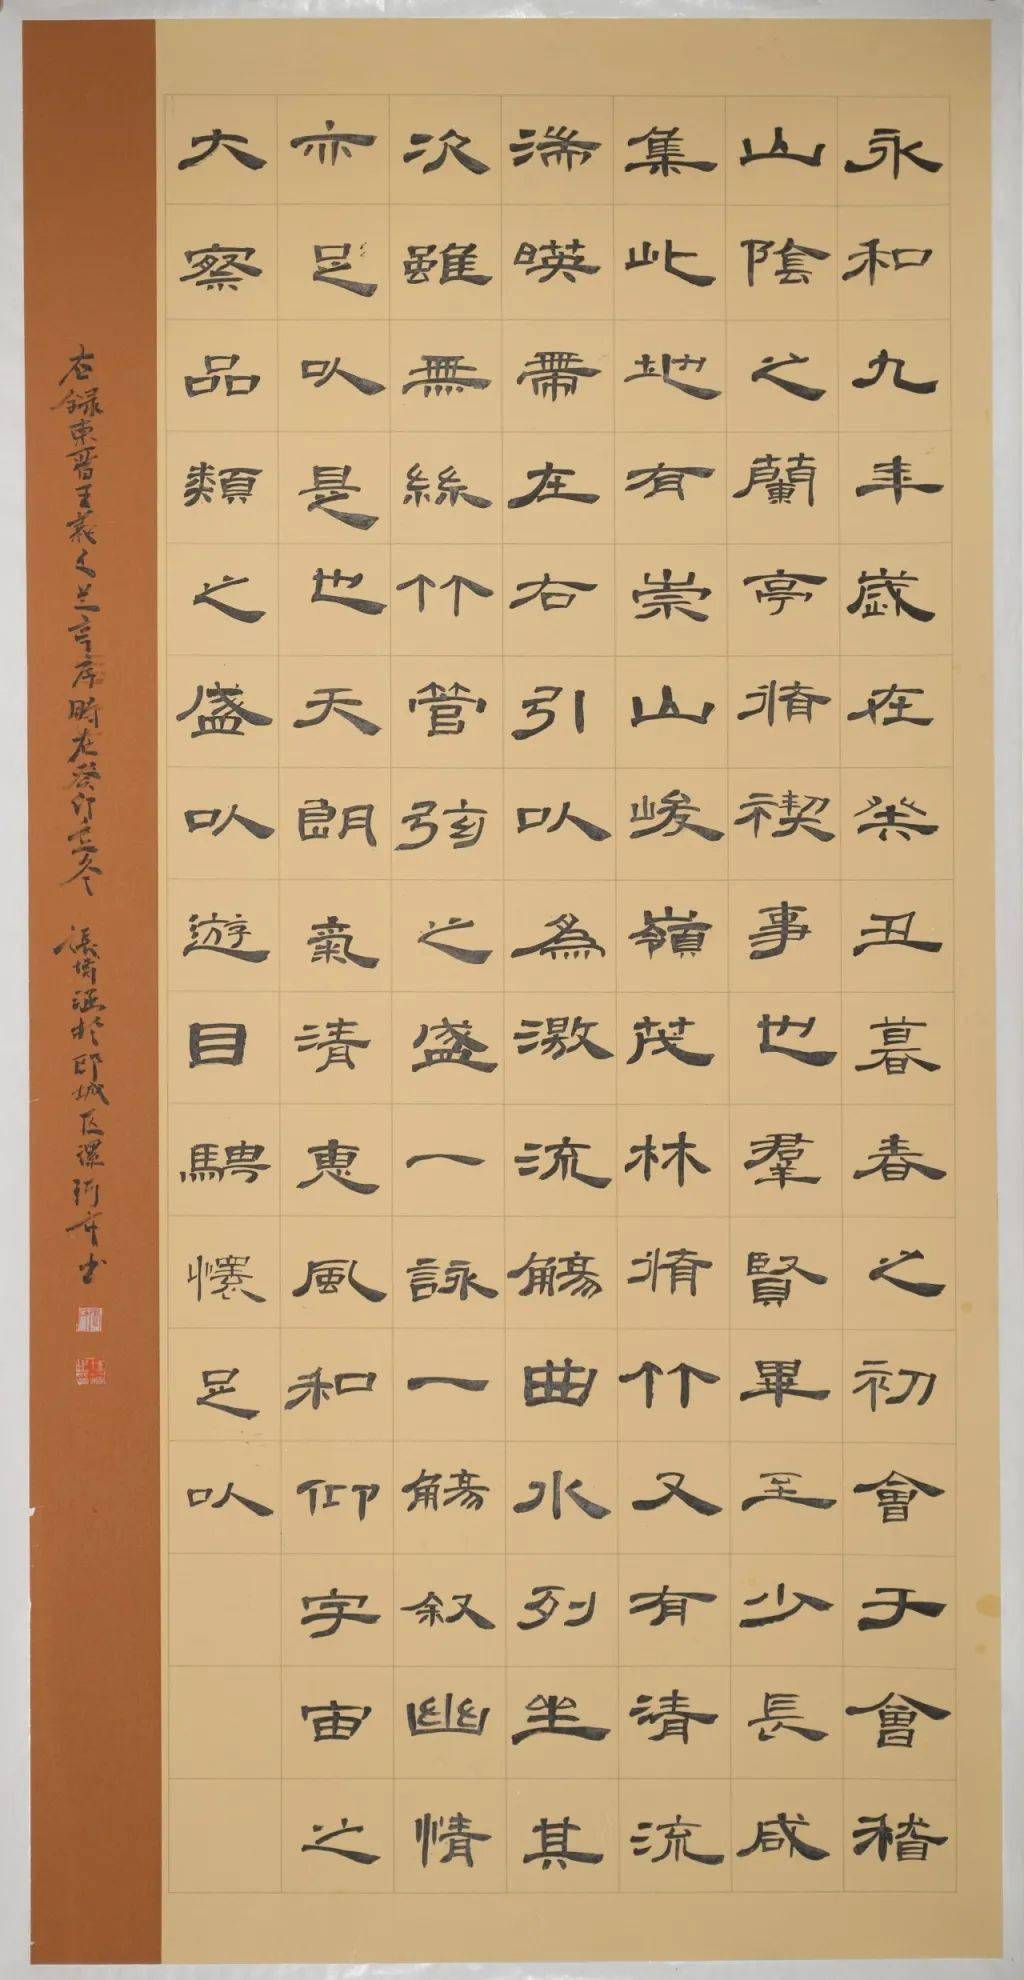 永和九年歲在癸丑暮春之初會于會稽
山陰之蘭亭脩禊事也羣賢畢至少長咸
集此地有崇山峻嶺茂林脩竹又有清流
湍暎帶左右引以為激流觴曲水列坐其
次雖無絲竹管弦之盛一詠一觴叙幽情
亦足以是也天朗氣清惠風和仰字宙之
大察品類之盛以遊目騁懷足以
右録東晋王羲之兰亭序時在癸卯孟冬 張涵於郾城区漯河市书